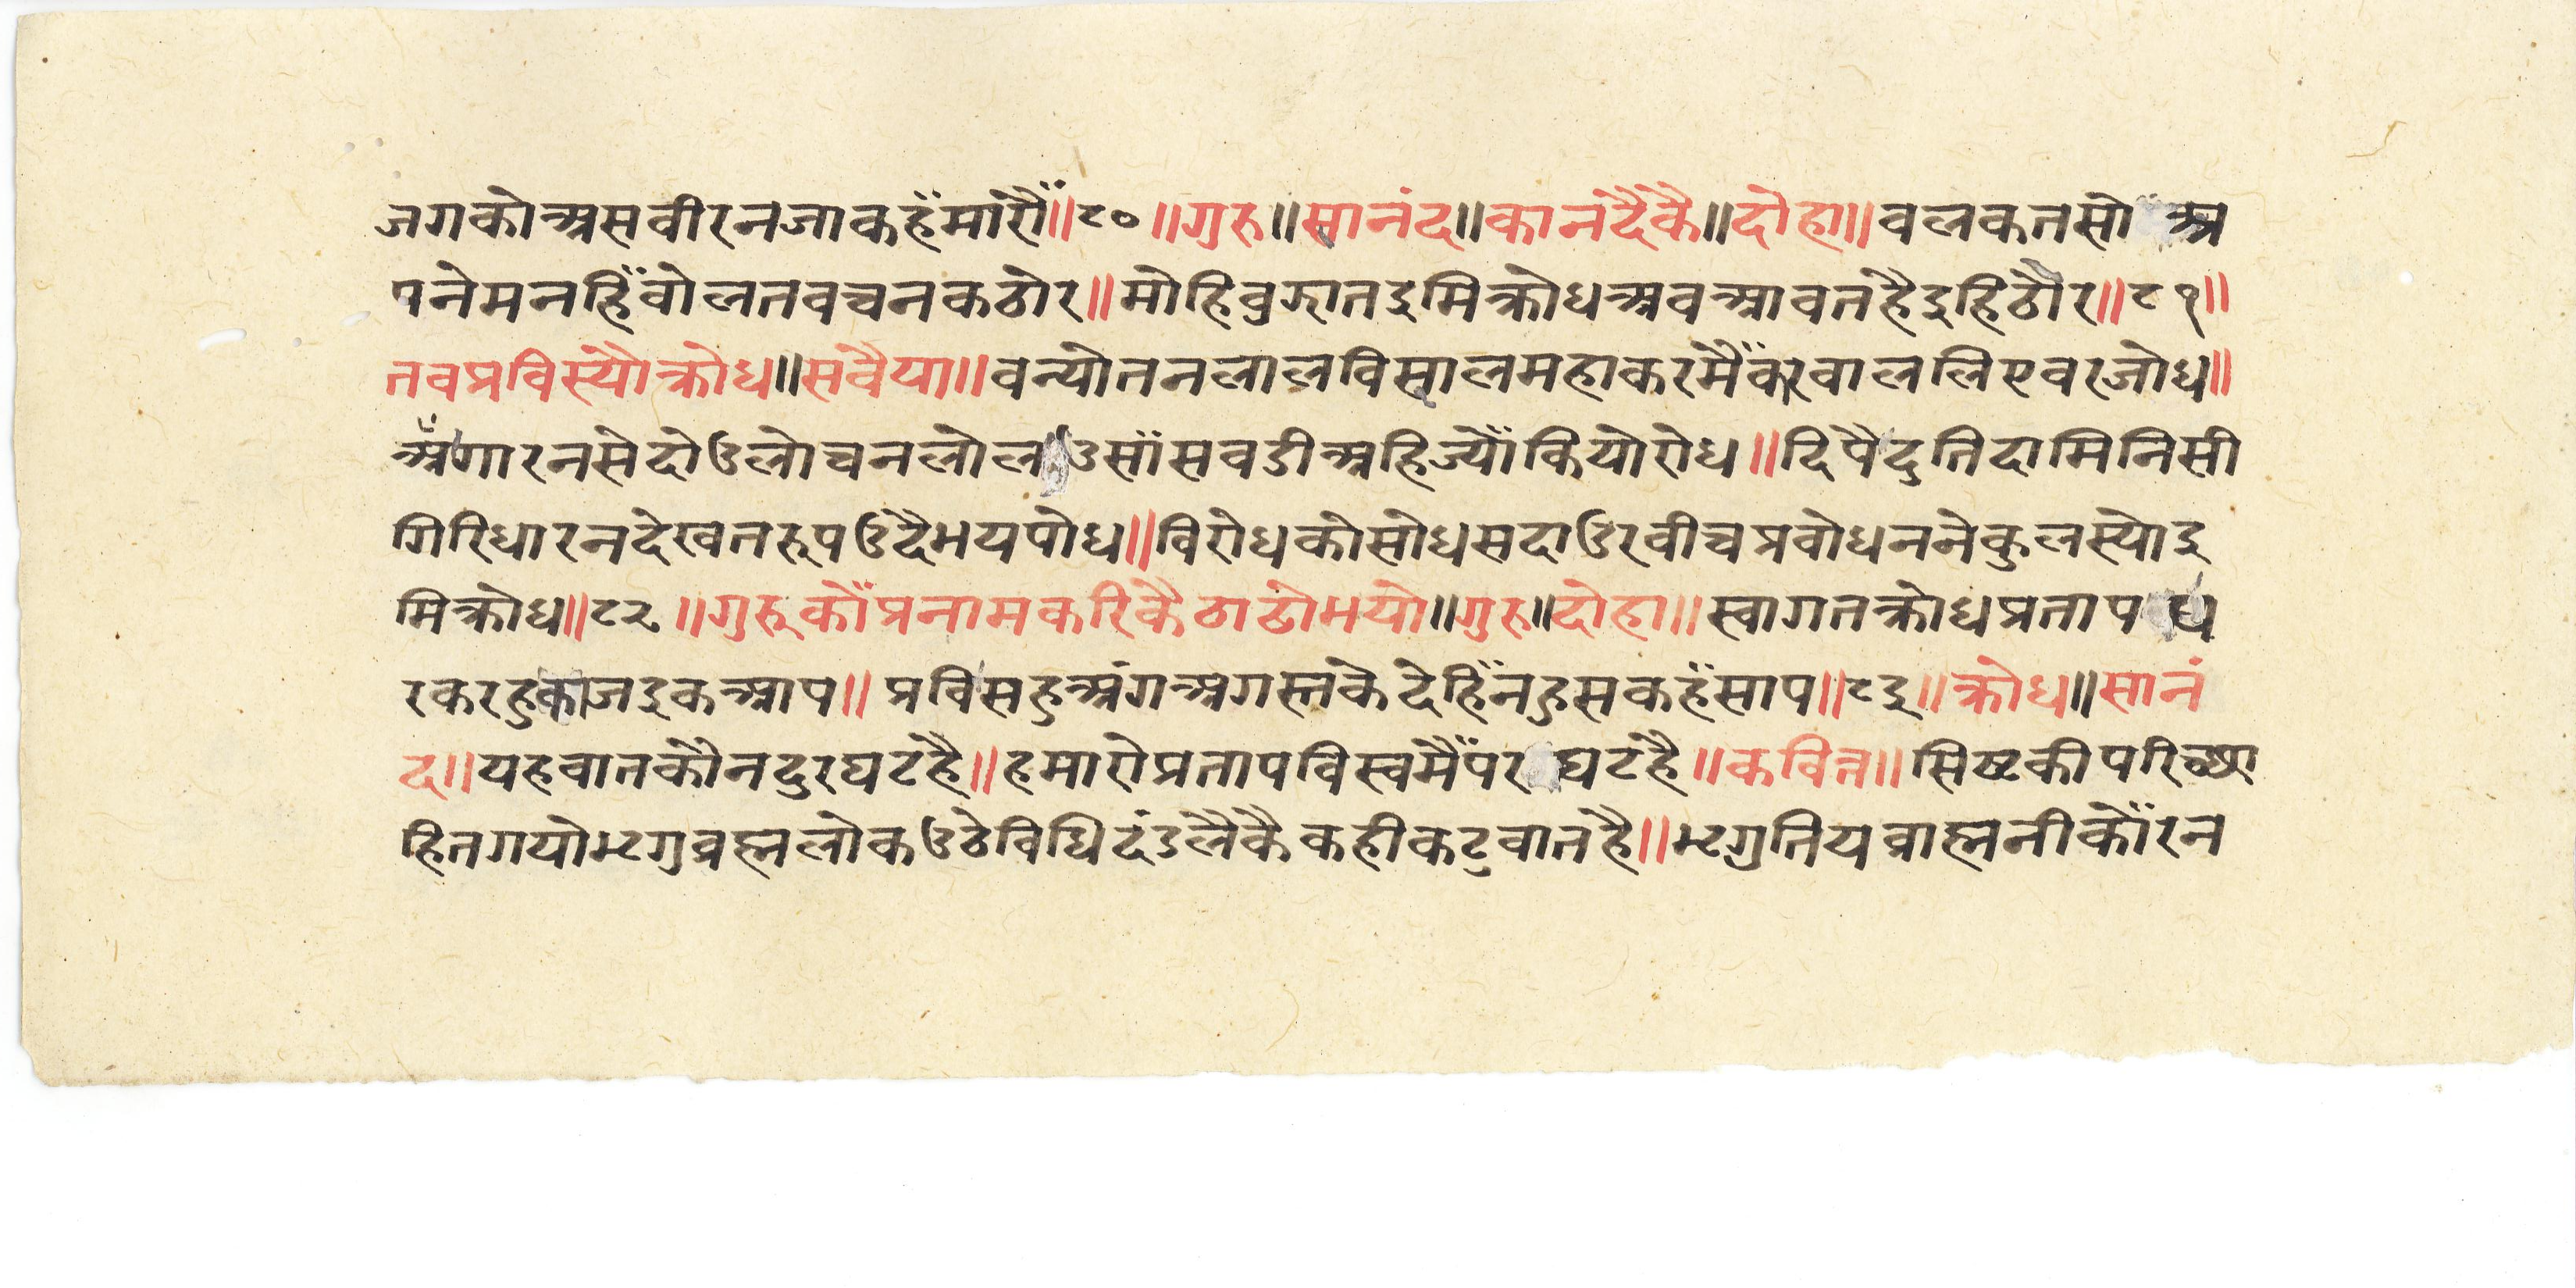 जगकोअसवीरनजाकहँमारौँ॥८०॥गुरु॥सानंद॥कानदैकै॥दोहा॥वलकतसो अ
पनेमनहिँवोलतवचनकठोर॥मोहिवुझातइमिक्रोधअवआवतहैइहिठौर॥८१॥
तवप्रविस्यौक्रोध॥सवैया॥वन्योतनलालविसालमहाकरमैँकरवाललिएवरजोध॥
अँगारनसेदोउलोचनलोल उसाँसवडीअहिज्योँकियोरोध॥दिपैदुतिदामिनिसी
गिरिधारनदेखतरूपउदैभयपोध॥विरोधकोसोधसदाउरवीचप्रवोधननेकुलस्योइ
मिक्रोध॥८२॥गुरूकोँप्रनामकरिकैठाढोभयो॥गुरु॥दोहा॥स्वागतक्रोधप्रताप ध
रकरहुकाजइकआप॥प्रविसहुअंगअगस्तकेदेहिँनहुसकहँसाप॥८३॥क्रोध॥सानं
द॥यहवातकौनदुरघटहै॥हमारोप्रतापविस्वमैँपर घटहै॥कवित्त॥सिष्टकीपरिछ्या
हितगयोभृगुव्रह्मलोकउठेविधिदंडलैकैकहीकटुवातहै॥भृगुतियव्राह्मनीकोँरन